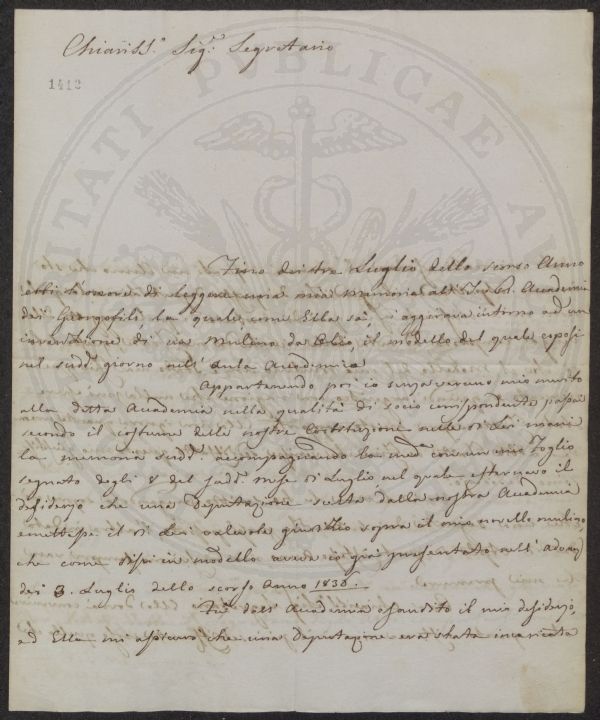 Chiariss.o Sig.r Segretario
1412
Fino dei tre Luglio dello scorso Anno
ebbi l'onore di leggere una mia memoria all' I. e R. Accademia
dei Georgofili la quale, come Ella sà, si aggirava intorno ad un
invenzione di un Mulino da Olio, il modello del quale esposi
nel sudd.o giorno nell' Aula Accademica
Appartenendo poi io senza veruno mio merito
alla dotta Accademia nella qualità di socio corrispondente passai
secondo il costume delle nostre Costituzioni nelle di Lei mani
la memoria sudd.a accompagnando la med.a con un mio Foglio
segnato degli 8 del sudd.o mese di Luglio nel quale esternavo il
desiderio che una Deputazione scelta dalla nostra Accademia
emettesse il di Lei valevole giudizio sopra il mio novello mulino
che come dissi in modello aveva io già presentato nell' Adunza
dei 3. Luglio dello scorso Anno 1836.
Fù dall' Accademia esaudito il mio desiderio,
ed Ella mi assicurò che una Deputazione era stata incaricata
VTILITATI PVBLICAE